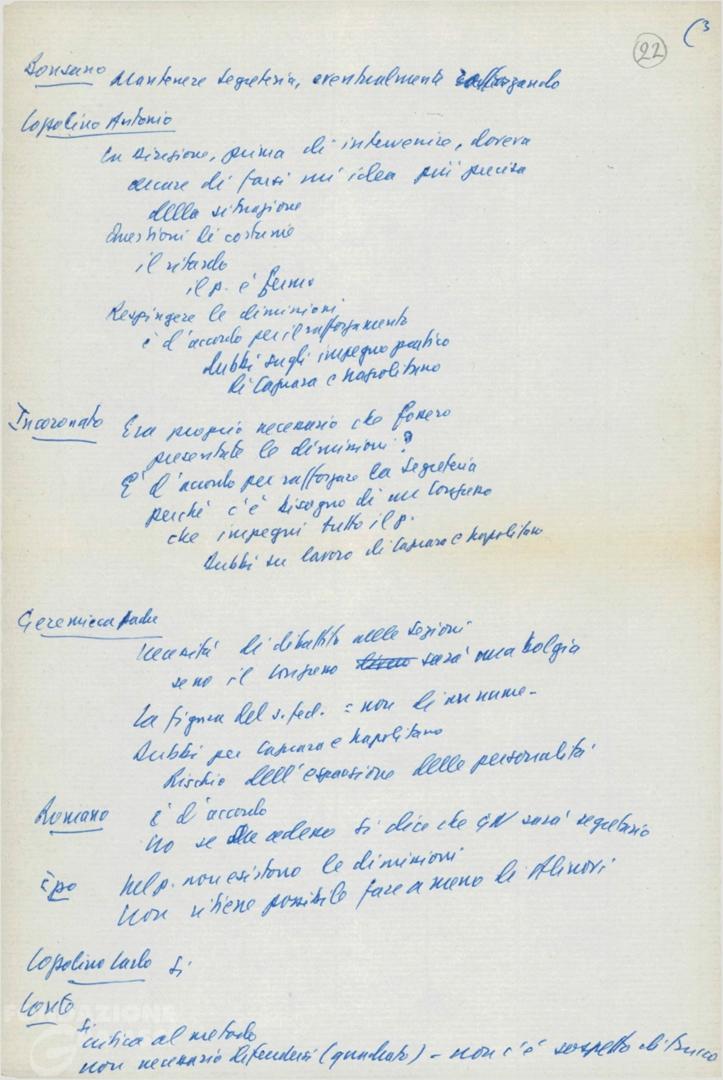 22
(3
Bonsano Mantenere segreteria, eventualmente rafforzando
Copolino Antonio
In Direzione, prima di intervenire, doveva
di farsi un'idea più precisa
della situazione
Questioni di costume
il ritardo
il p. è fermo
Respingere le dimissioni
è d'accordo per il rafforzamento
dubbi sugli impegno pratico
di Caprara e Napolitano
Incoronato Era proprio necessario che fossero
presentate le dimissioni?
E' d'accordo per rafforzare la segreteria
perché c'è bisogno di un Congresso
che impegni tutto il p.
Dubbi su lavoro di Caprara e Napolitano
Geremicca Padre
necessità di dibattito nelle sezioni
se no il Congresso sarà una bolgia
La figura del s. fed. = non di un nume-
Dubbi per Caprara e Napolitano
Rischio dell'espansione delle personalità
Romano E' d'accordo
No se adesso si dice che GN sarà segretario
Epo Nel p. non esistono le dimissioni
Non ritiene possibile fare a meno di Alinovi
Copolino Carlo si
Conte
Si critica al metodo
non necessario difendersi (quadrato) - non c'è sospetto di trucco
FONDAZIONE